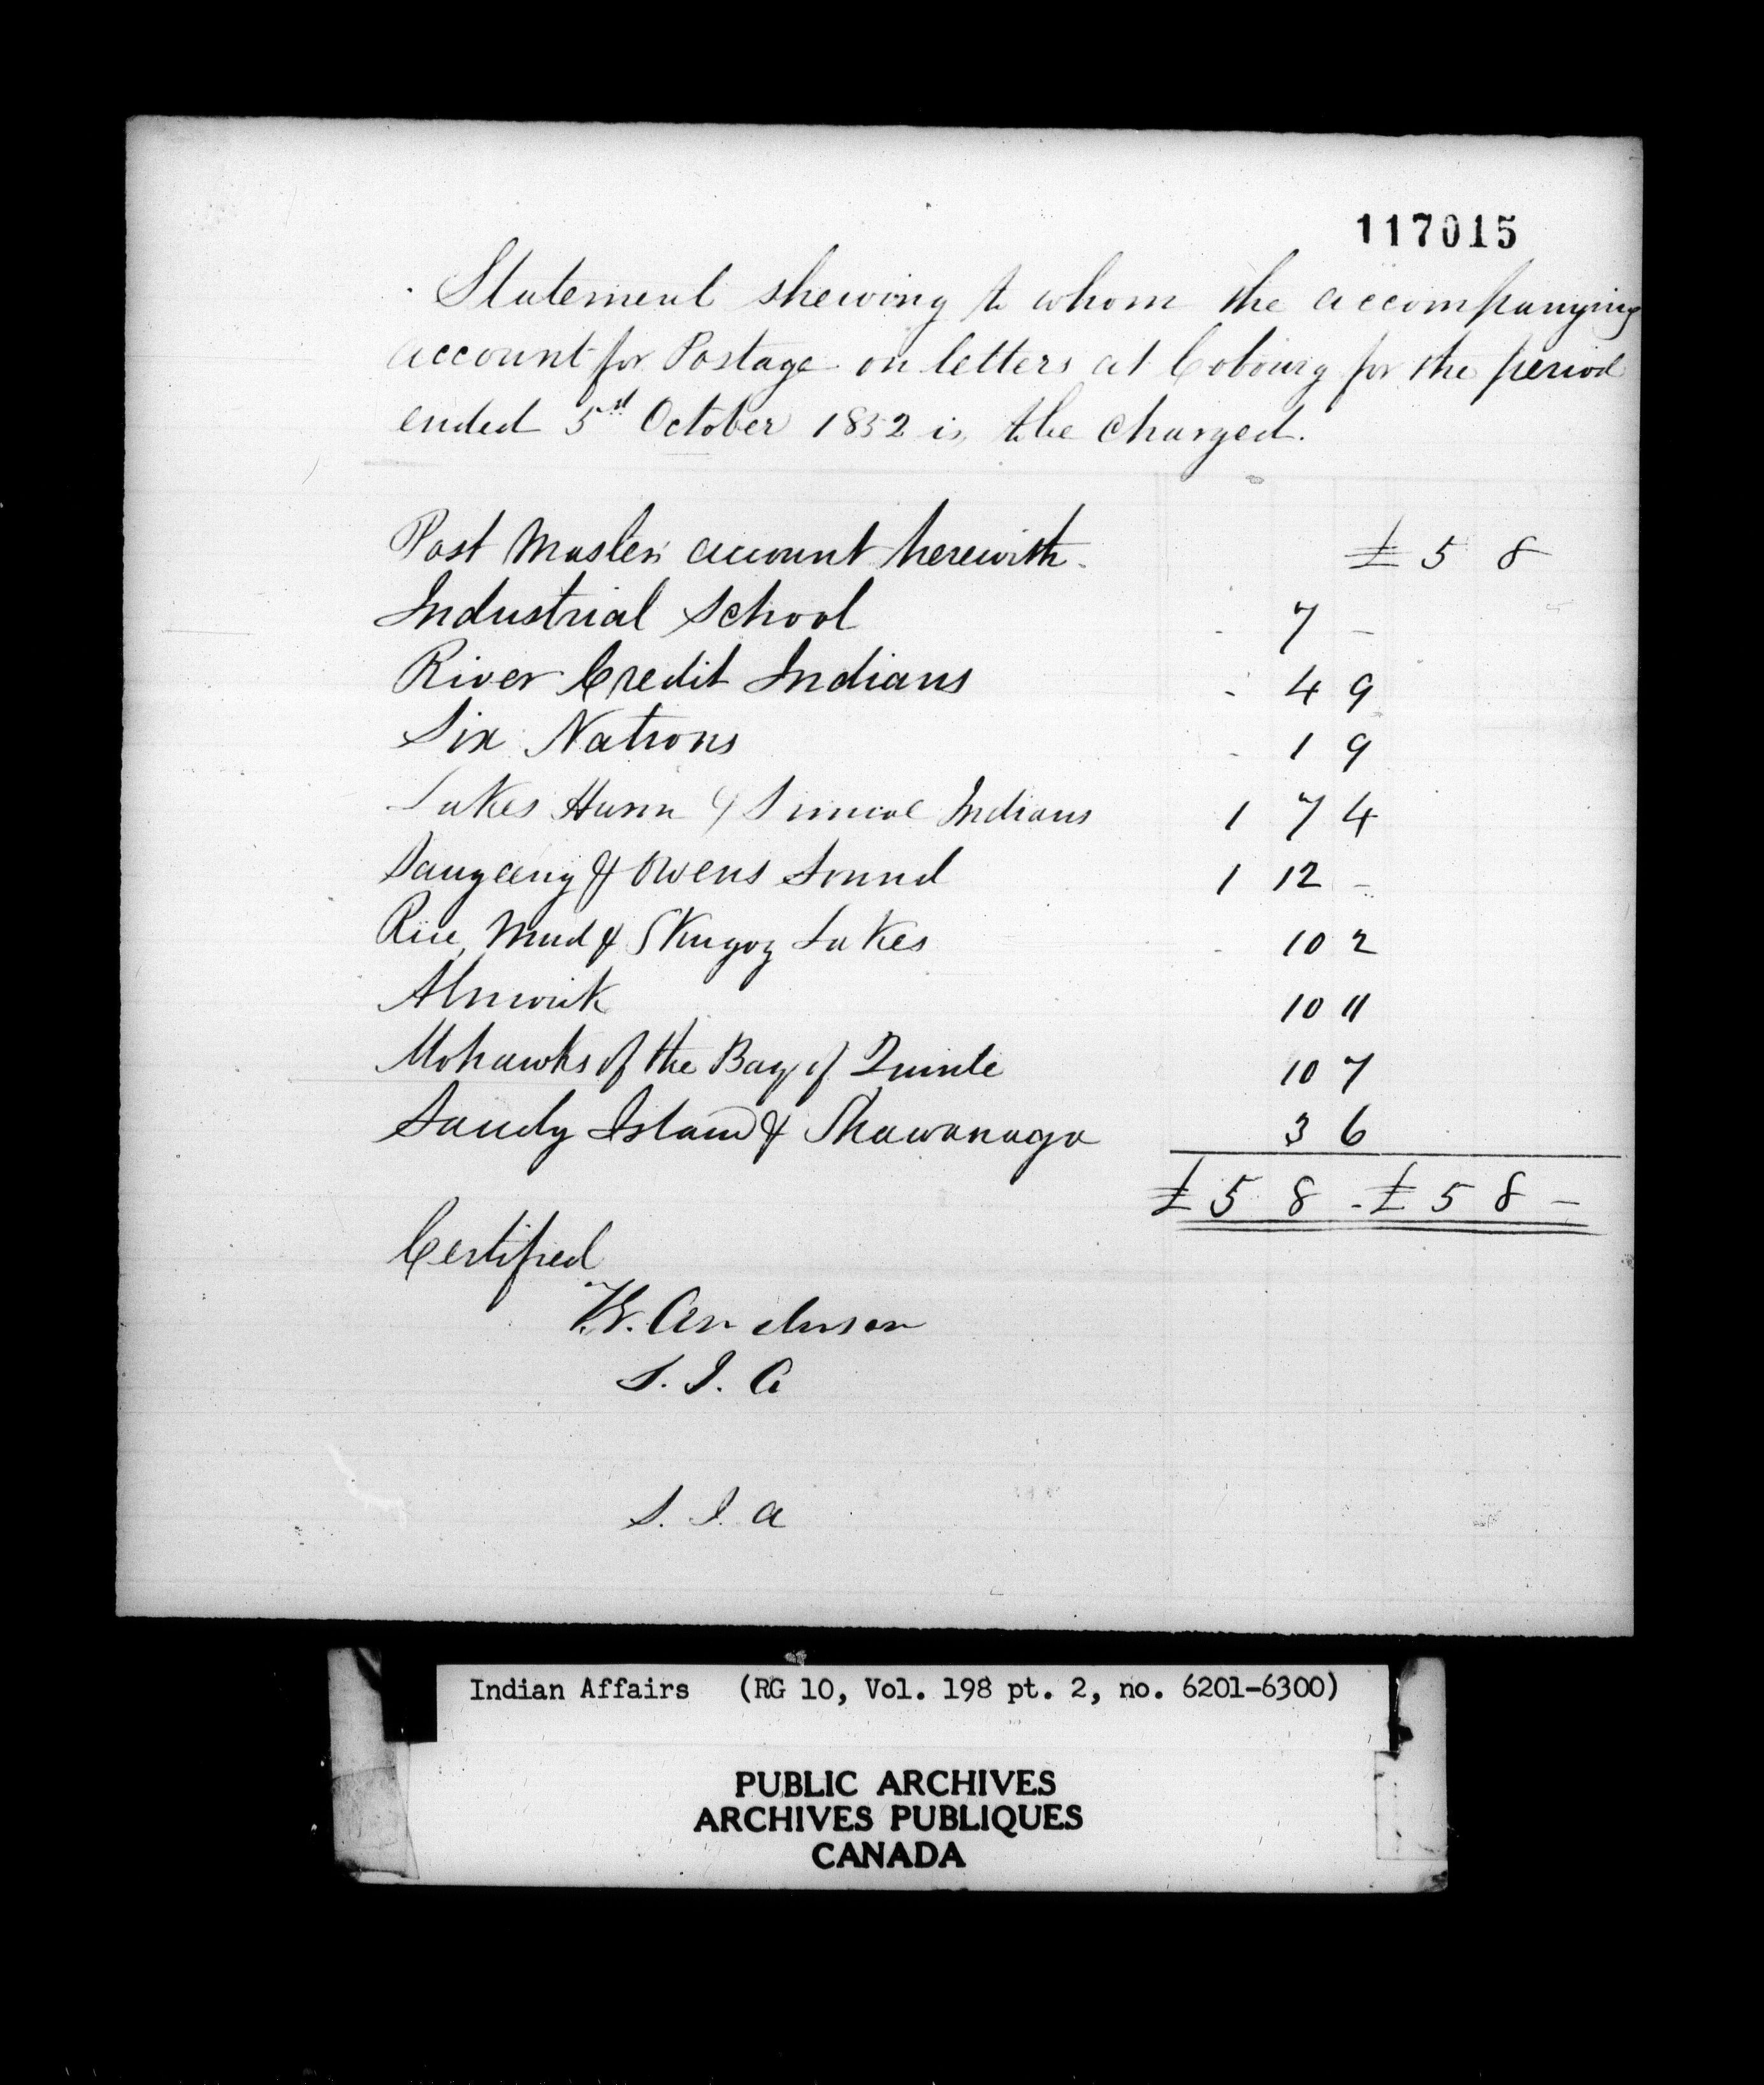 117015
Statement shewing to whom the accompanying
account for Postage on letters at Cobourg for the period
ended 5th October 1852 is to be charged.
Post Masters account herewith. £ 5 8
Industrial School - 7 -
River Credit Indians - 4 9
Six Nations - 1 9
Lakes Huron & Simcoe Indians 1 7 4
Saugeeng & Owens Sound 1 12 -
Rice, Mud & Skugog Lakes - 10 2
Alnwick 10 11
Mohawks of the Bay of Quinte 10 7
Sandy Island & Shawanaga 3 6
£ 5 8 - £ 5 8 -
Certified
Anderson
S. I. A
S. I. A
Indian Affairs (RG 10, Vol. 198 pt. 2, no. 6201-6300)
PUBLIC ARCHIVES
ARCHIVES PUBLIQUES
CANADA